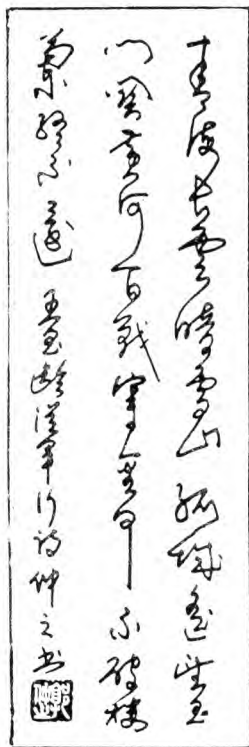 青海長雲暗雪山孤城遙望玉
門關黃河百戰穿金甲不破樓
蘭終不還 王昌齡從軍行詩仲之書